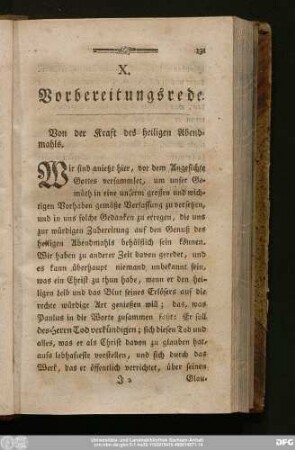 131
X.
Vorbereitungsrede.
Von der Kraft des heiligen Abend-
mahls.
Wir sind anietzt hier, vor dem Angesichte
Gottes versammlet, um unser Ge-
müth in eine unserm grossen und wich-
tigen Vorhaben gemäße Verfassung zu versetzen,
und in uns solche Gedanken zu erregen, die uns
zur würdigen Zubereitung auf den Genuß des
heiligen Abendmahls behülflich sein können.
Wir haben zu anderer Zeit davon geredet, und
es kann überhaupt niemand unbekannt sein,
was ein Christ zu thun habe, wenn er den hei-
ligen Leib und das Blut seines Erlösers auf die
rechte würdige Art genießen will; das, was
Paulus in die Worte zusammen faßt: Er soll
des Herrn Tod verkündigen; sich diesen Tod und
alles, was er als Christ davon zu glauben hat,
aufs lebhafteste vorstellen, und sich durch das
Werk, das er öffentlich verrichtet, über seinen
J 2
Glau-
Universitäts- und Landesbibliothek Sachsen-Anhalt
DFG